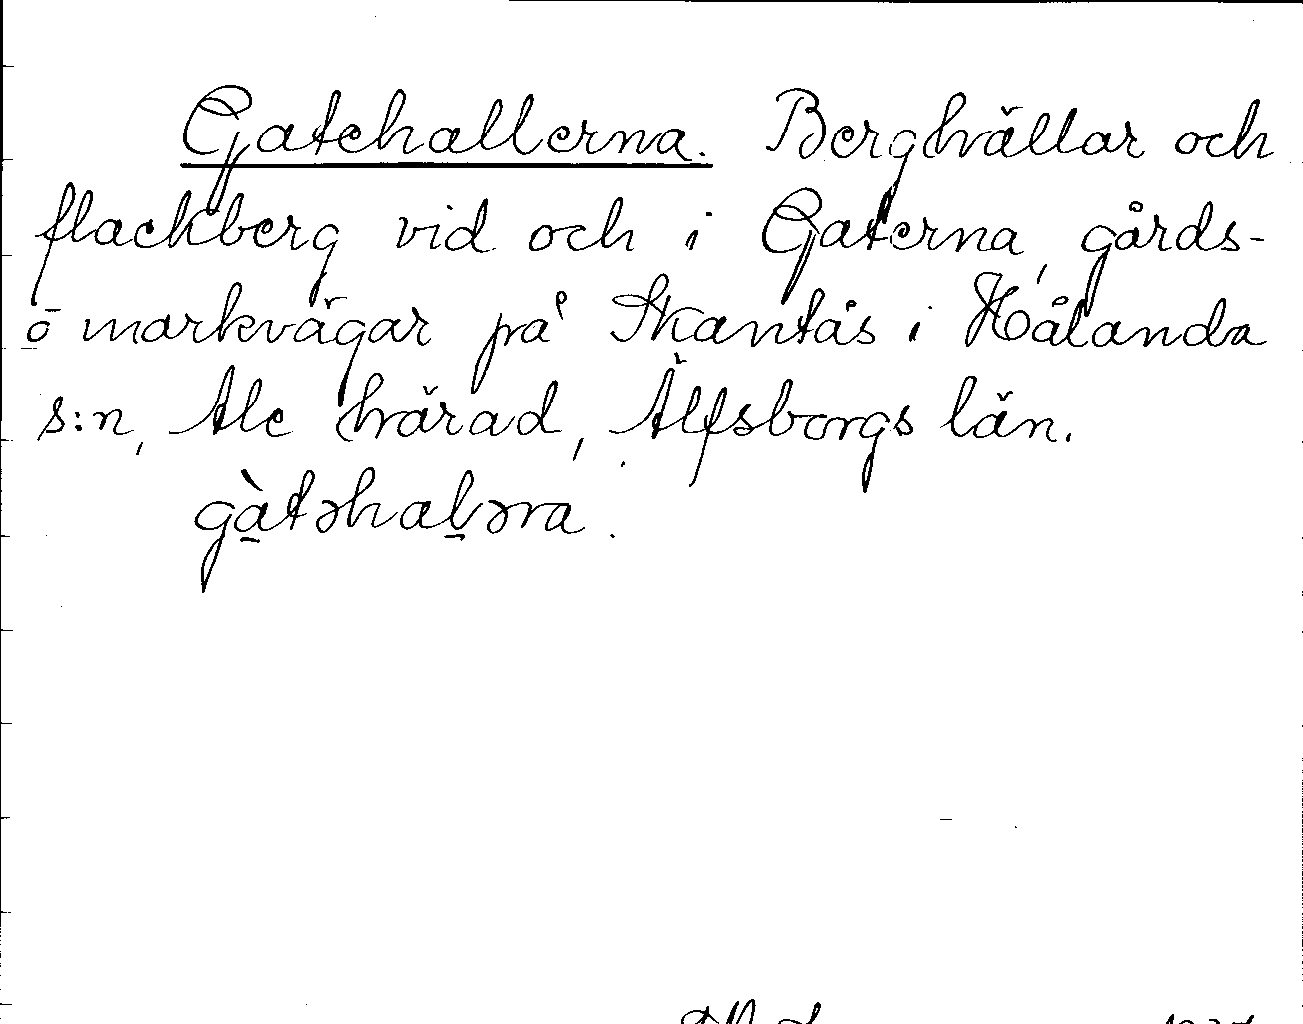 Gatehallerna. Berghällar och
flackberg vid och i Gaterna, gårds-
o markvägar på Skantås i Hålanda
s:n, Ale härad, Älfsborgs län.
gàtəhaḻəra.